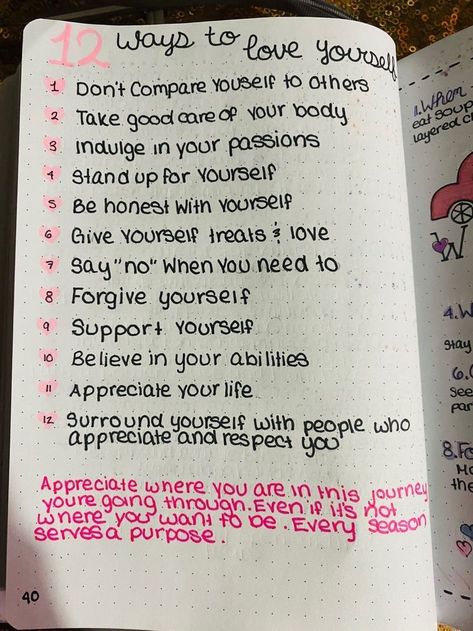 12 ways to love yourself
1 Don't Compare Youself to others
2 Take good care of your body
3 Indulge in your passions
4 Stand up for yourself
5 Be honest with yourself
6 Give yourself treats & love
7 Say "no" when you need to
8 Forgive yourself
9 Support yourself
10 Believe in your abilities
11 Appreciate your life
12 Surround yourself with people who
appreciate and respect you
Appreciate where you are in this journey
you're going through. Even if it's not
where you want to be. Every season
serves a purpose.
40
1. When
eat soup
layered
Stay
See
the